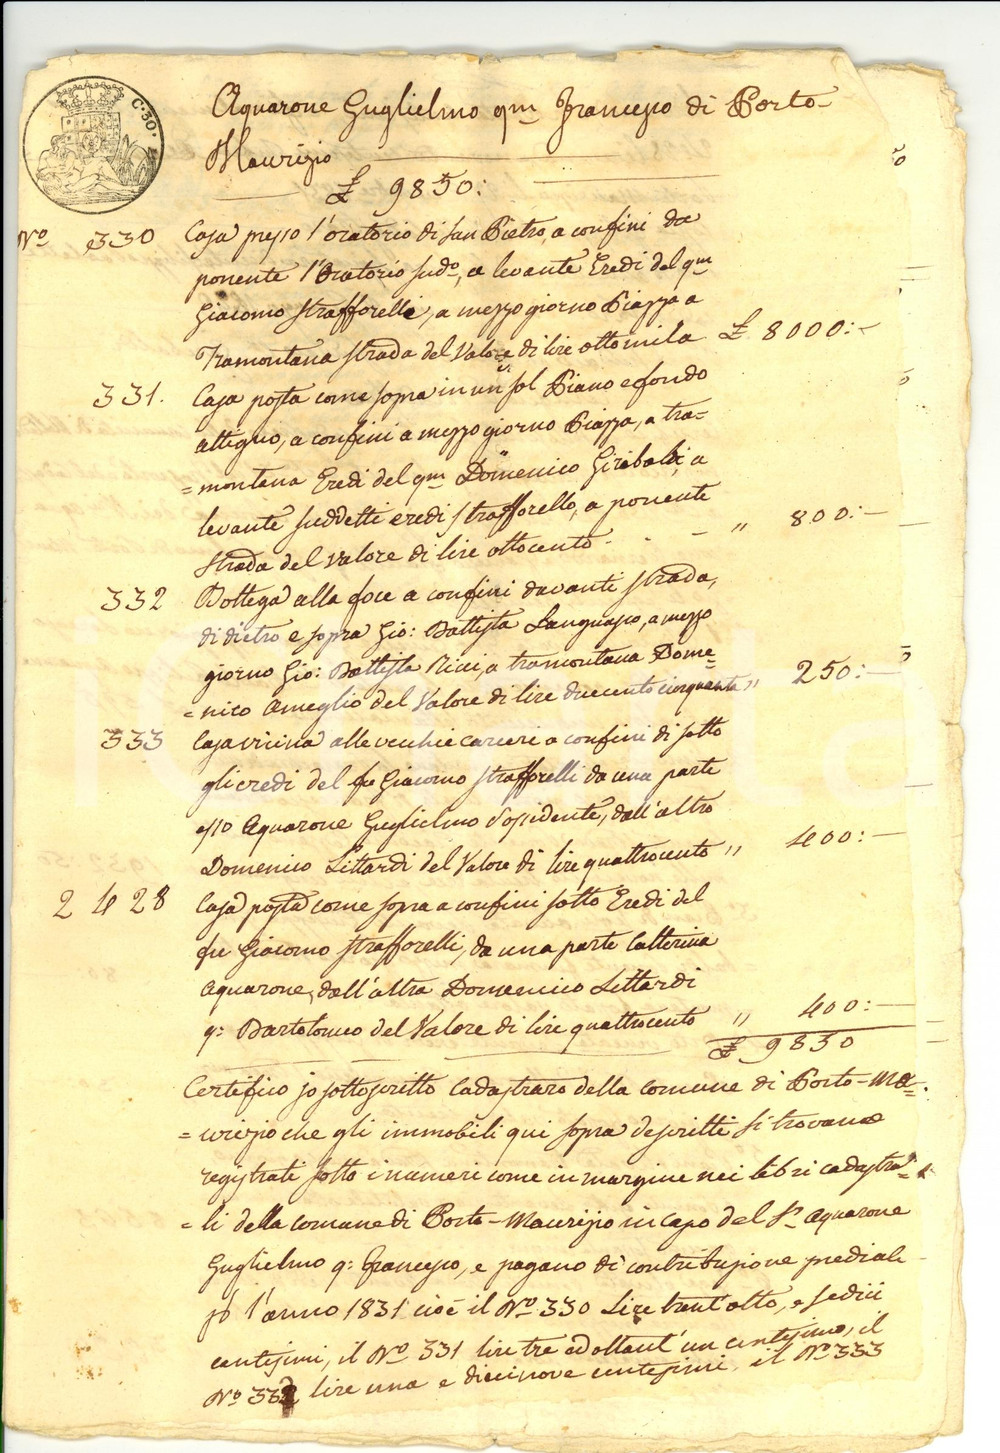 C. 30.
Aquarone Guglielmo qm Francesco di Porto-
Maurizio
£ 9850:
No 330 Casa presso l'oratorio di San Pietro, a confini da
ponente l'Oratorio sudo, a levante Eredi del qm
Giacomo Strafforelli, a mezzo giorno Piazza a
Tramontana strada del Valore di lire otto mila £ 8000:-
331. Casa posta come sopra in un sol Piano e fondo
attiguo, a confini a mezzo giorno Piazza, a tra=
=montana Eredi del qm Domenico Giribaldi, a
levante suddetti eredi Strafforello, a ponente
strada del valore di lire ottocento - - - " 800:-
332 Bottega alla foce a confini davanti strada,
di dietro e sopra Gio: Battista Languasco, a mezzo
giorno Gio: Battista Ricci, a tramontana Dome=
=nico Ameglio del Valore di lire duecento cinquanta " 250:-
333 Casa vicina alle vecchie carceri a confini di sotto
gli eredi del fu Giacomo Strafforelli da una parte
esso Aquarone Guglielmo Possidente, dall'altro
Domenico Littardi del Valore di lire quattrocento " 400:-
2428 Casa posta come sopra a confini sotto Eredi del
fu Giacomo Strafforelli, da una parte Catterina
Aquarone, dall'altra Domenico Littardi
q: Bartolomeo del Valore di lire quattrocento " 400:-
£ 9850
Certifico jo sottoscritto Cadastraro della comune di Porto-Ma=
=urizio che gli immobili qui sopra descritti si trovano
registrati sotto i numeri come in margine nei libri cadastra=
=li della comune di Porto-Maurizio in capo del Sr Aquarone
Guglielmo q: Francesco, e pagano di contribuzione prediale
po l'anno 1831 cioè il No 330 Lire trent'otto, e sedici
centesimi, il No 331 lire tre ed ottant'un centesimo, il
No 332 lire una e diecinove centesimi, il No 333